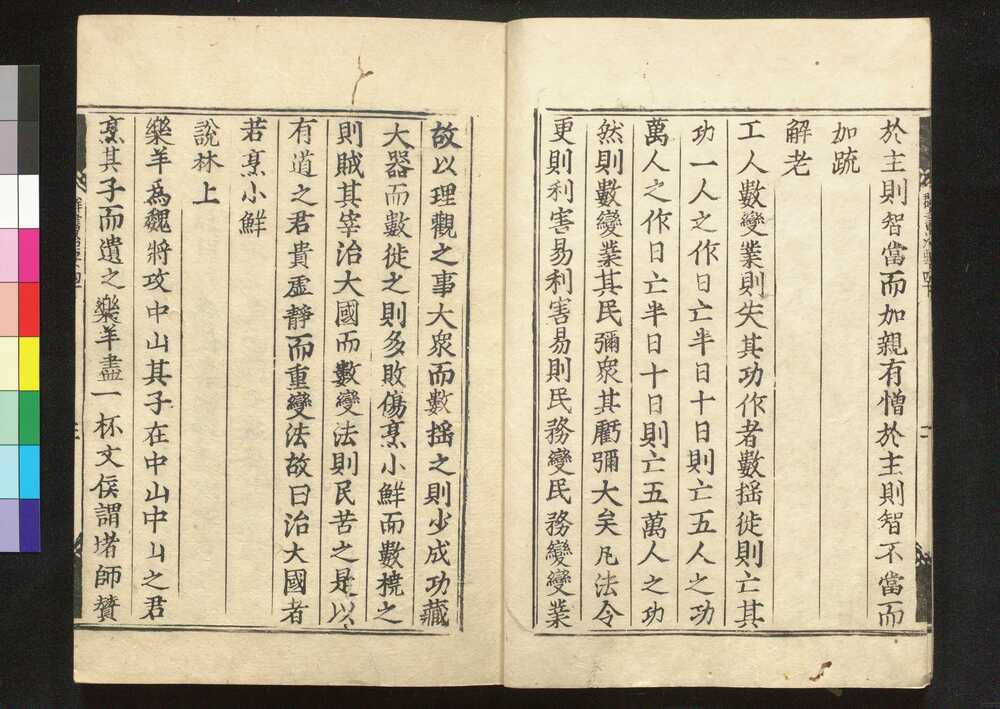 於主則智當而加親有憎於主則智不當而
加疏
解老
工人數變業則失其功作者數揺徙則亡其
功一人之作日亡半日十日則亡五人之功
萬人之作日亡半日十日則亡五萬人之功
然則數變業其民彌衆其虧彌大矣凡法令
更則利害易利害易則民務變民務變變業
故以理觀之事大衆而數揺之則少成功藏
大器而數徙之則多敗傷烹小鮮而數撓之
則賊其宰治大國而數變法則民苦之是以
有道之君貴虚靜而重變法故曰治大國者
若烹小鮮
說林上
樂羊爲魏將攻中山其子在中山中山之君
烹其子而遺之樂羊盡一杯文侯謂堵師賛